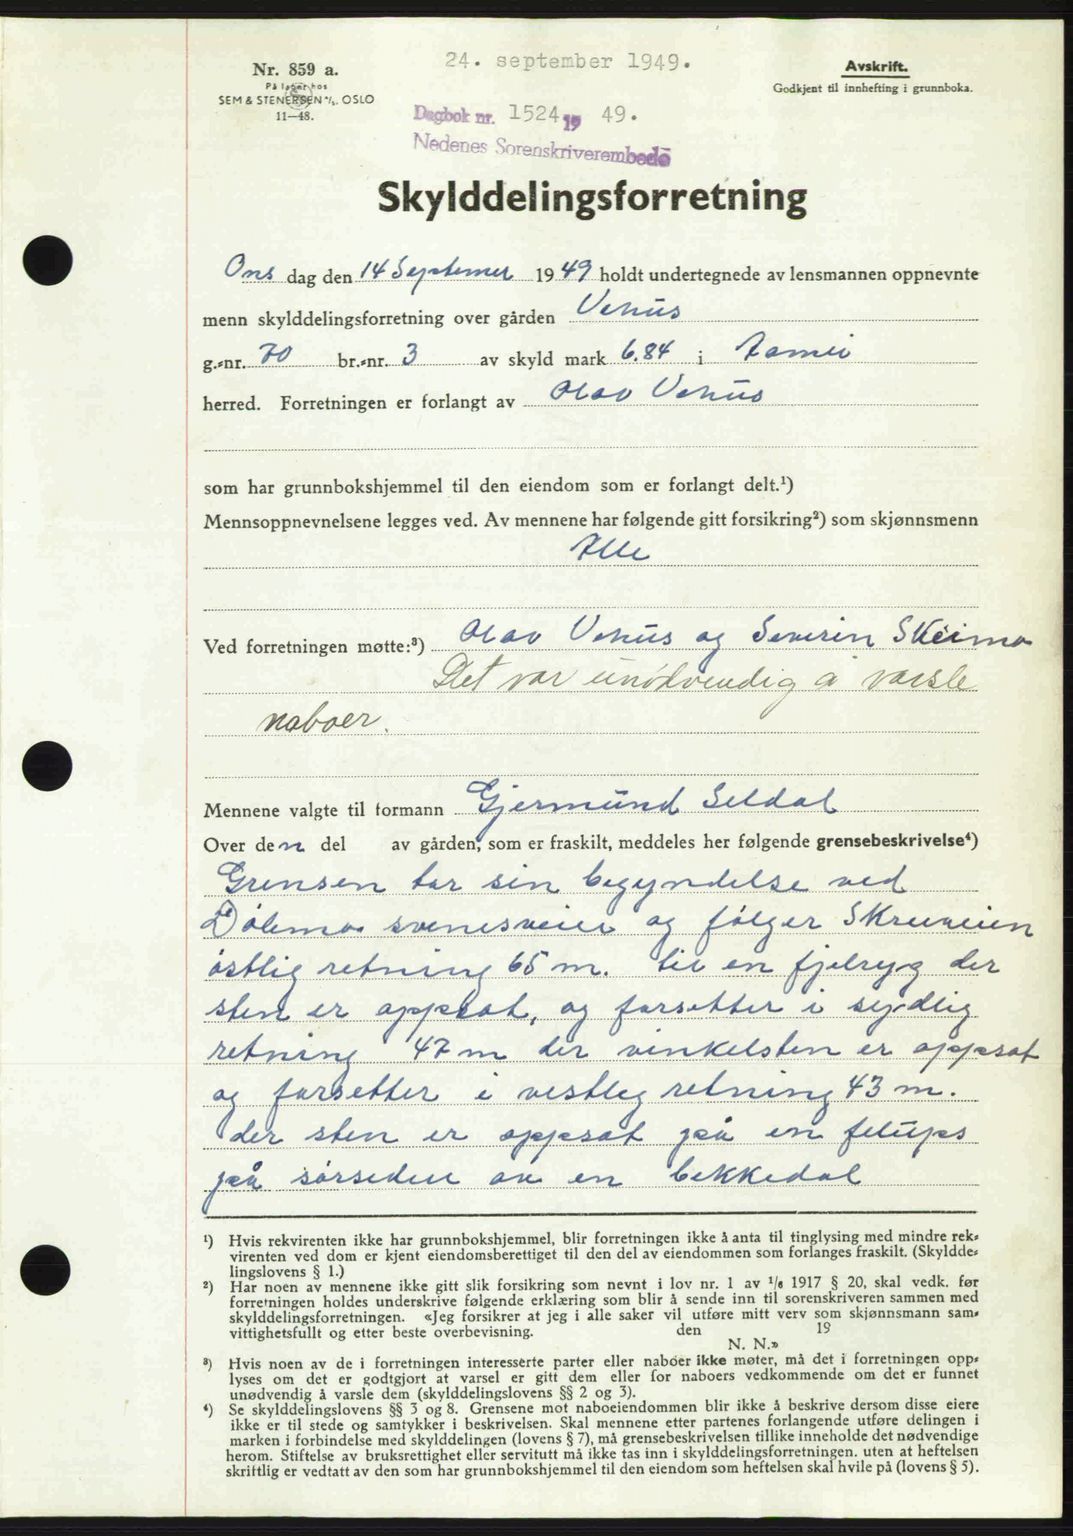 24. september 1949.
Nr. 859 a.
På lager hos
SEM & STENERSEN A/S. OSLO
11—48.
Avskrift.
Godkjent til innhefting i grunnboka.
Dagbok nr. 1524 19 49.
Nedenes Sorenskriverembede
Skylddelingsforretning
Ons dag den 14 September 1949 holdt undertegnede av lensmannen oppnevnte
menn skylddelingsforretning over gården Vehus
g.-nr. 70 br.-nr. 3 av skyld mark 6.84 i
herred. Forretningen er forlangt av Olav Vehus
som har grunnbokshjemmel til den eiendom som er forlangt delt.¹)
Mennsoppnevnelsene legges ved. Av mennene har følgende gitt forsikring²) som skjønnsmenn
Alle
Ved forretningen møtte:³) Olav Vehus og Severin Skeimo
Det var unødvendig å varsle
naboer.
Mennene valgte til formann Gjermund Seldal
Over den del av gården, som er fraskilt, meddeles her følgende grensebeskrivelse⁴)
Grensen tar sin begyndelse ved
Dølemo svenesveien og følger Skreveien
østlig retning 65 m. til en fjelryg der
sten er oppsat, og farsetter i sydlig
retning 47 m der vinkelsten er oppsat
og farsetter i vestlig retning 43 m.
der sten er oppsat på en
på sørsiden av en bekkedal
¹) Hvis rekvirenten ikke har grunnbokshjemmel, blir forretningen ikke å anta til tinglysing med mindre rek-
virenten ved dom er kjent eiendomsberettiget til den del av eiendommen som forlanges fraskilt. (Skyldde-
lingslovens § 1.)
²) Har noen av mennene ikke gitt slik forsikring som nevnt i lov nr. 1 av 1/6 1917 § 20, skal vedk. før
forretningen holdes underskrive følgende erklæring som blir å sende inn til sorenskriveren sammen med
skylddelingsforretningen. «Jeg forsikrer at jeg i alle saker vil utføre mitt verv som skjønnsmann sam-
vittighetsfullt og etter beste overbevisning. den 19
N. N.»
³) Hvis noen av de i forretningen interesserte parter eller naboer ikke møter, må det i forretningen opp-
lyses om det er godtgjort at varsel er gitt dem eller for naboers vedkommende om det er funnet
unødvendig å varsle dem (skylddelingslovens §§ 2 og 3).
⁴) Se skylddelingslovens §§ 3 og 8. Grensene mot naboeiendommen blir ikke å beskrive dersom disse eiere
ikke er til stede og samtykker i beskrivelsen. Skal mennene etter partenes forlangende utføre delingen i
marken i forbindelse med skylddelingen (lovens § 7), må grensebeskrivelsen tillike inneholde det nødvendige
herom. Stiftelse av bruksrettighet eller servitutt må ikke tas inn i skylddelingsforretningen, uten at heftelsen
skriftlig er vedtatt av den som har grunnbokshjemmel til den eiendom som heftelsen skal hvile på (lovens § 5).